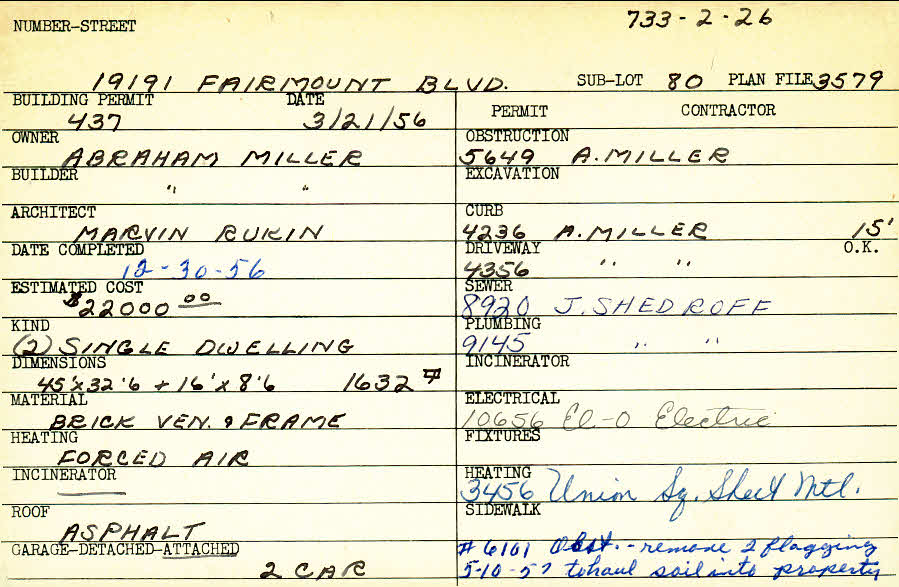 733-2-26
NUMBER-STREET
19191 FAIRMOUNT BLVD. SUB-LOT 80 PLAN FILE 3579
BUILDING PERMIT DATE
437 3/21/56
OWNER
ABRAHAM MILLER
BUILDER
" "
ARCHITECT
MARVIN RUKIN
DATE COMPLETED
12-30-56
ESTIMATED COST
$22000 00
KIND
(2) SINGLE DWELLING
DIMENSIONS
45'x32'6 + 16'x8'6 1632
MATERIAL
BRICK VEN. & FRAME
HEATING
FORCED AIR
INCINERATOR
ROOF
ASPHALT
GARAGE-DETACHED-ATTACHED
2 CAR
PERMIT CONTRACTOR
OBSTRUCTION
5649 A. MILLER
EXCAVATION
CURB
4236 A. MILLER 15'
DRIVEWAY O.K.
4356 " "
SEWER
8920 J. SHEDROFF
PLUMBING
9145 " "
INCINERATOR
ELECTRICAL
10656 El-O Electric
FIXTURES
HEATING
3456 Union Sq. Sheet Mtl.
SIDEWALK
#6101 Obst. - remove 2 flagging
5-10-57 to haul soil into property